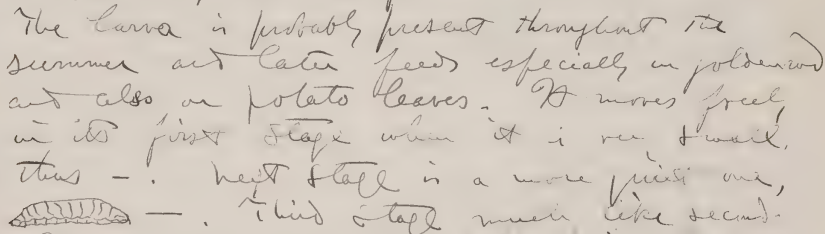 The larva is probably present throughout the
summer and later feeds especially on goldenrod
and also on potato leaves. It moves freely
in its first stage when it is very small,
thus — . Next stage is a more one,
— . Third stage much like second.